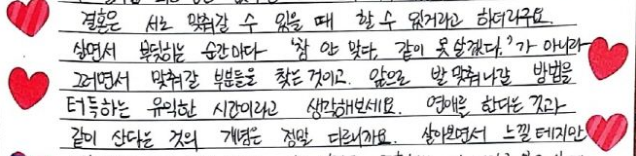 결혼은 서로 맞춰갈 수 있을 때 할 수 있거라고 하더라구요.
살면서 부딪히는 순간마다 '참 안 맞다. 같이 못 살겠다.'가 아니라
그러면서 맞춰갈 부분들을 찾는 것이고. 앞으로 발 맞춰나갈 방법을
터득하는 유익한 시간이라고 생각해보세요. 연애를 한다는 것과
같이 산다는 것의 개념은 정말 다르니까요. 살아보면서 느낄테지만